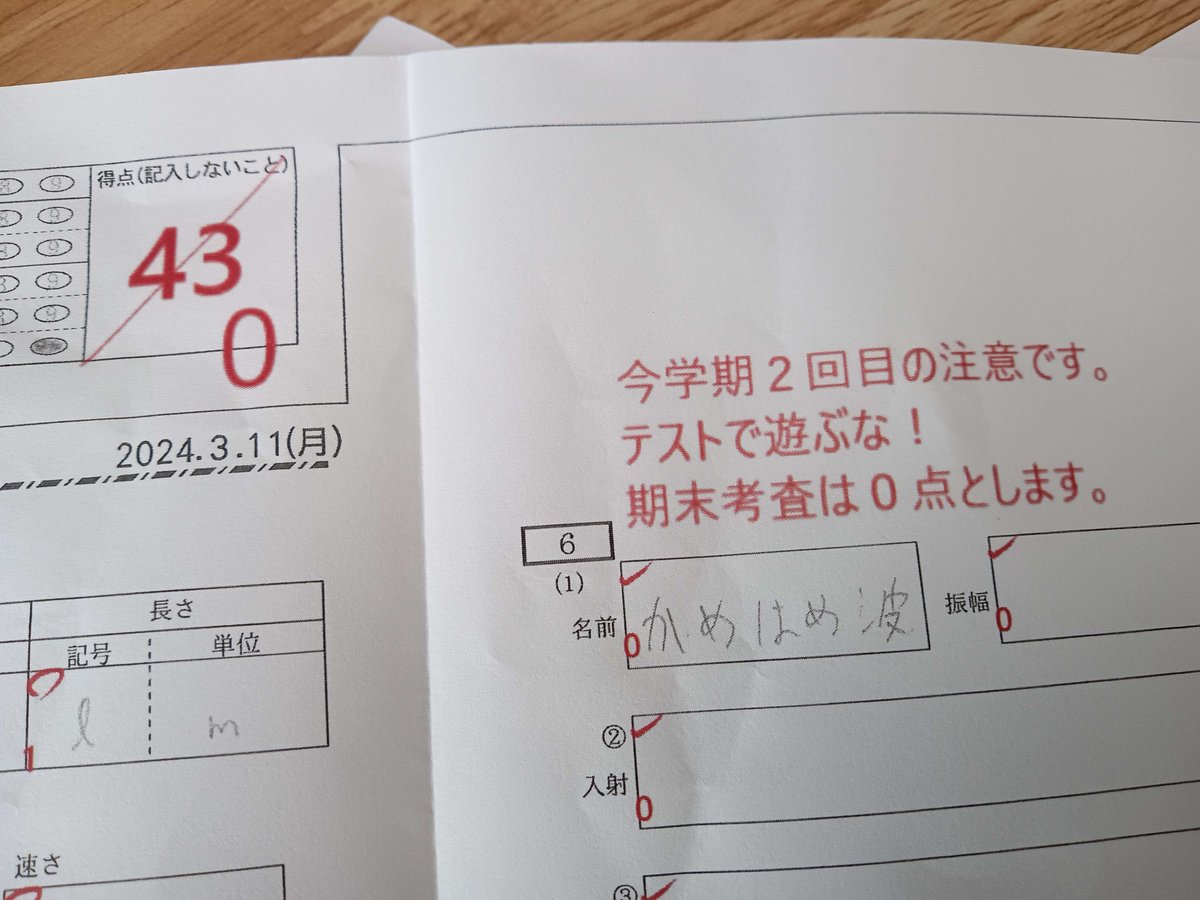 得点(記入しないこと)
9
9
9
9
9
43
0
2024.3.11(月)
長さ
記号
単位
l
m
1
速さ
今学期2回目の注意です。
テストで遊ぶな！
期末考査は0点とします。
6
(1)
名前
かめはめ波
0
振幅
0
②
入射
0
③